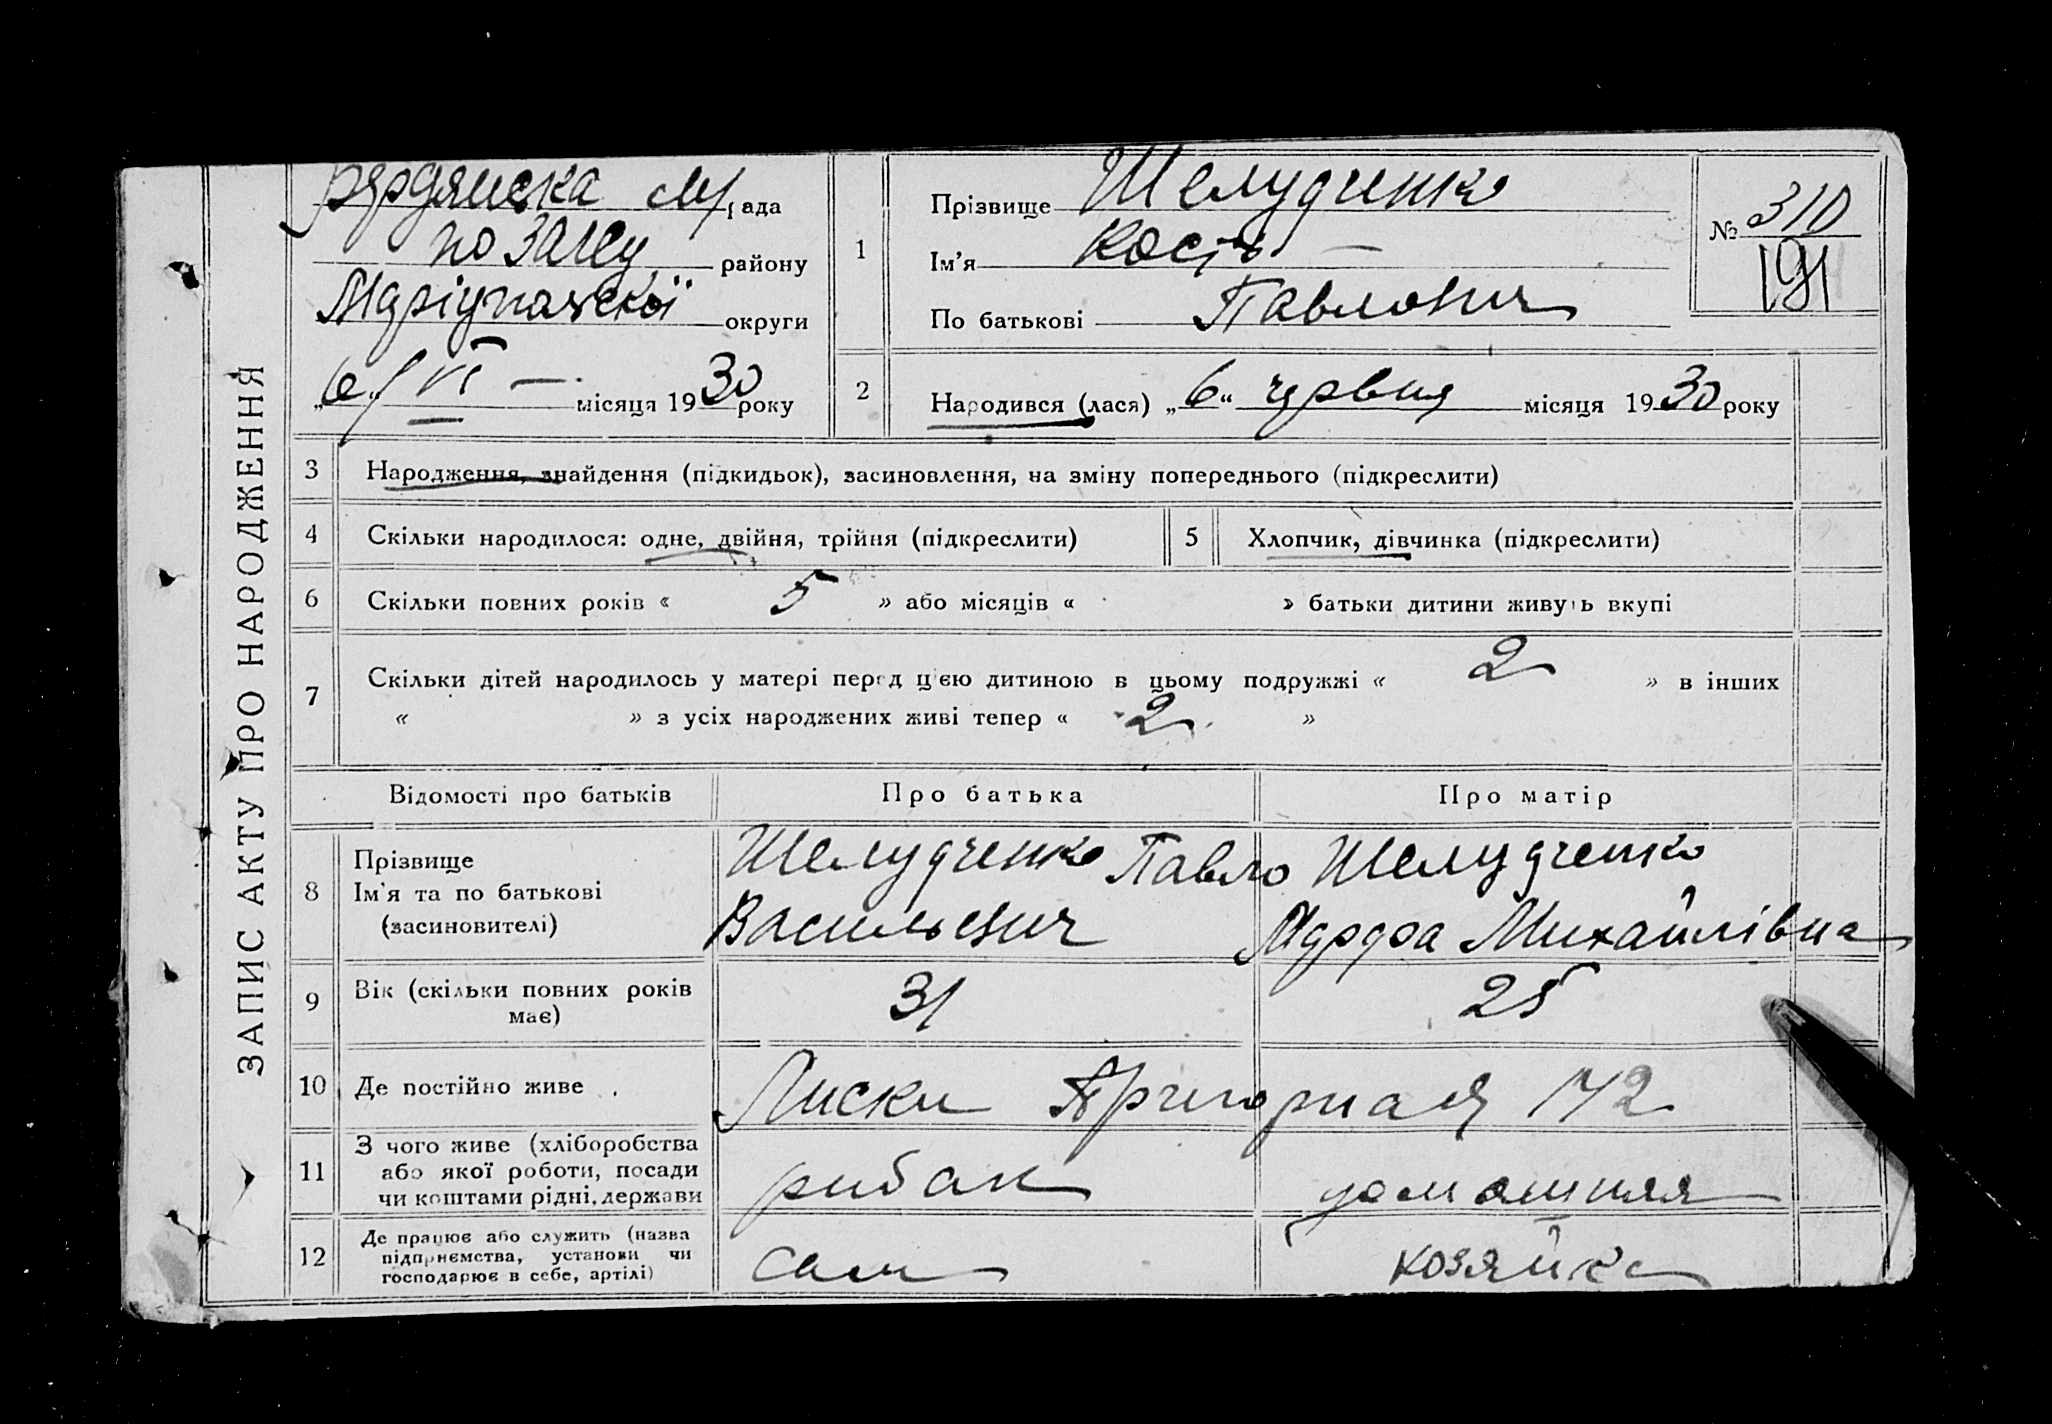 ЗАПИС АКТУ ПРО НАРОДЖЕННЯ
Бердянска м/рада
по ЗАГСу району
Маріупольскої округи
„6“ VI — місяця 1930 року
1
Прізвище Шелудченко
Ім'я Кость —
По батькові Павлович
№ 310
191
2
Народився (лася) „6“ червня місяця 1930 року
3 Народження, знайдення (підкидьок), засиновлення, на зміну попереднього (підкреслити)
4 Скільки народилося: одне, двійня, трійня (підкреслити) 5 Хлопчик, дівчинка (підкреслити)
6 Скільки повних років « 5 » або місяців « » батьки дитини живуть вкупі
7 Скільки дітей народилось у матері перед цією дитиною в цьому подружжі « 2 » в інших
« » з усіх народжених живі тепер « 2 »
Відомості про батьків Про батька Про матір
8 Прізвище
Ім'я та по батькові
(засиновителі)
Шелудченко Павло
Васильевич
Шелудченко
Марфа Михайлівна
9 Вік (скільки повних років
має)
31 25
10 Де постійно живе Лиски 172
11 З чого живе (хліборобства
або якої роботи, посади
чи коштами рідні, держави
рибак домашняя
12 Де працює або служить (назва
підприємства, установи чи
господарює в себе, артілі)
сам хозяйка